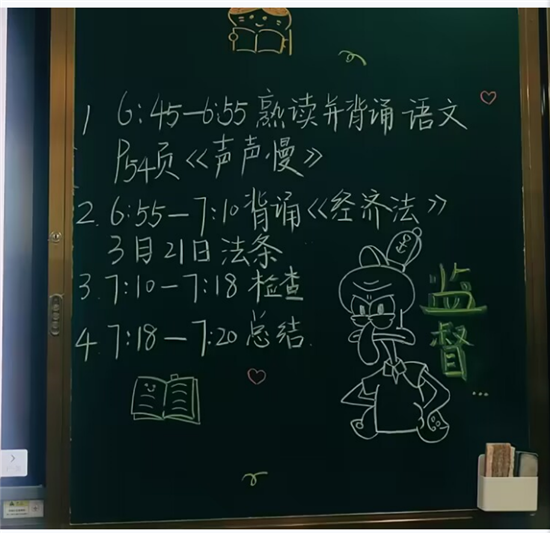 1 6:45—6:55 熟读并背诵 语文
P54页《声声慢》
2. 6:55—7:10 背诵《经济法》
3月21日 法条
3. 7:10—7:18 检查
4. 7:18—7:20 总结.
监
督
...